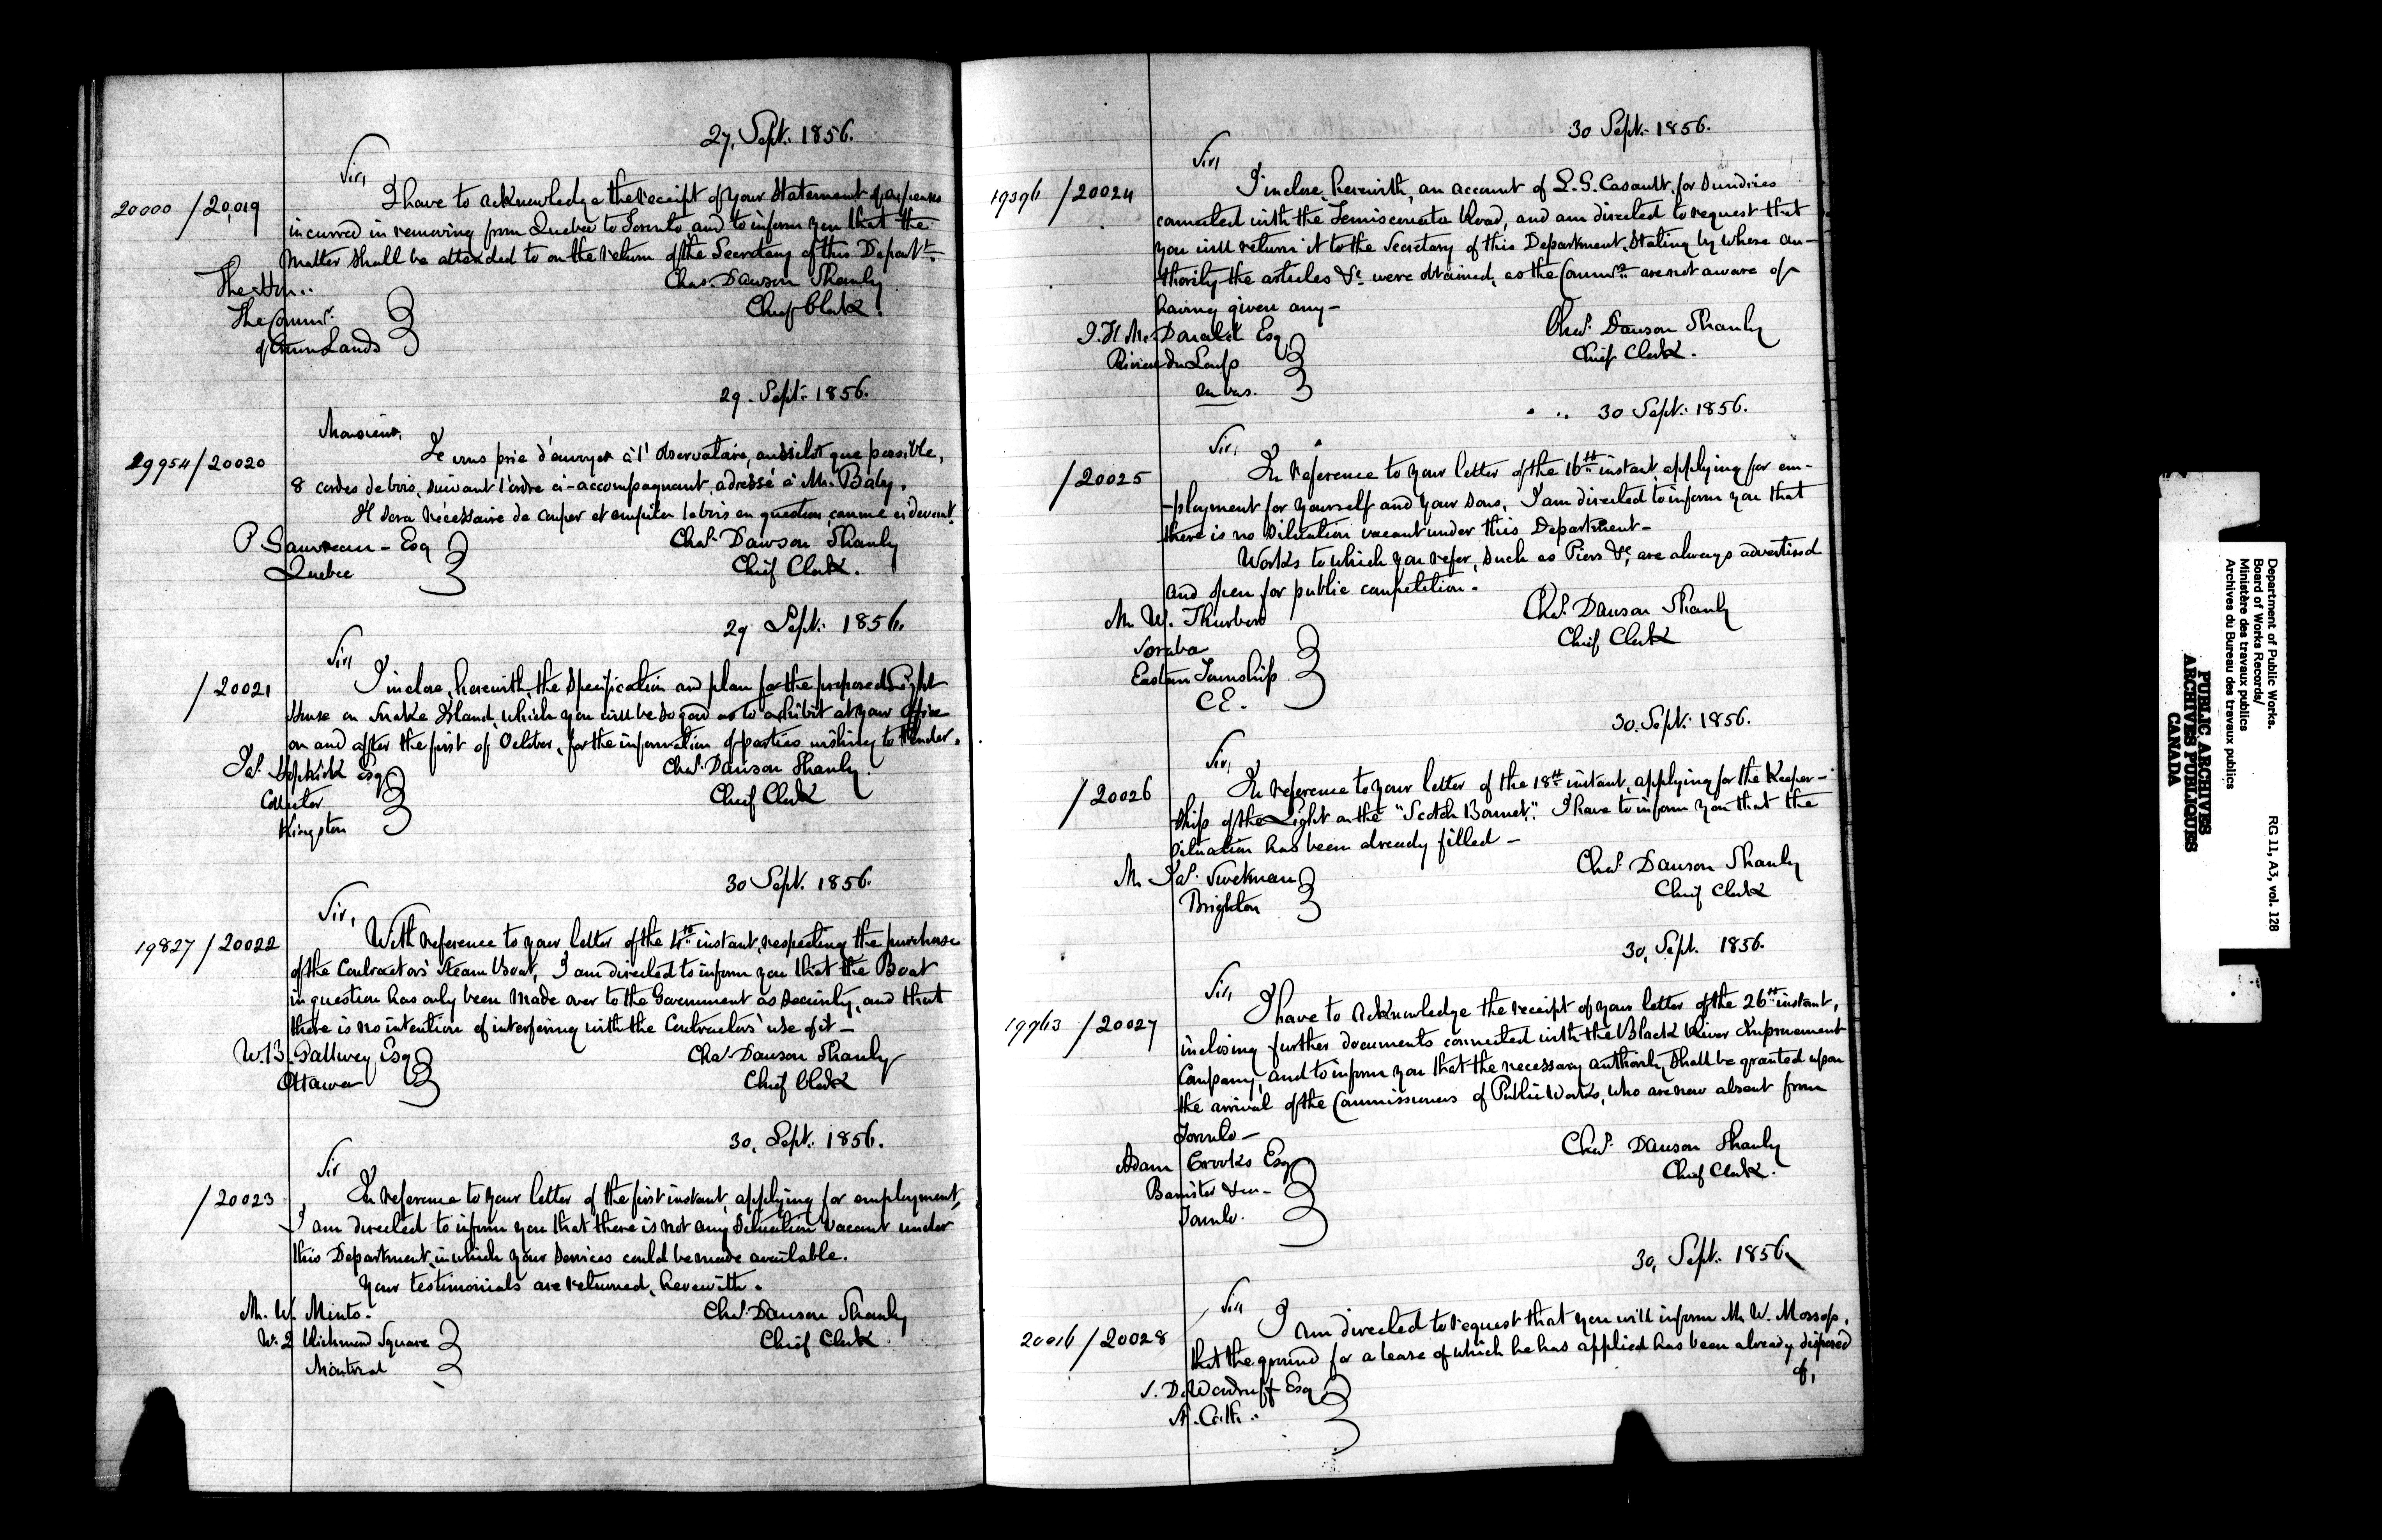 27, Sept: 1856.
Sir,
20000 / 20,019
I have to acknowledge the receipt of your Statement of expenses
incurred in removing from Quebec to Toronto, and to inform you that the
Matter shall be attended to on the return of the Secretary of this Departt.
The Hon:
The Commr.
of Crown Lands
Chas. Dawson Shanly
Chief Clerk.
29. Sept: 1856.
Monsieur,
19954 / 20020
Je vous prie d'envoyer à l'Observatoire, aussitot que possible,
8 cordes de bois, suivant l'ordre ci-accompagnant, adressé à Mr. Baby.
Il sera nécessaire de couper et empiler le bois en question, comme ci devant.
P Gauvreau - Esq
Quebec
Chas. Dawson Shanly
Chief Clerk.
29 Sept: 1856.
Sir
/ 20021
I inclose, herewith, the Specification and plan for the proposed Light
House on Snake Island, which you will be so good as to exhibit at your Office
on and after the first of October, for the information of parties wishing to tender.
Jas. Hopkirk Esq
Collector
Kingston
Chas. Dawson Shanly.
Chief Clerk
30 Sept. 1856.
Sir,
19827 / 20022
With reference to your letter of the 4th instant, respecting the purchase
of the Contractors' Steam Boat, I am directed to inform you that the Boat
in question has only been made over to the Government as security, and that
there is no intention of interfering with the Contractors' use of it —
W.B. Gallwey Esq
Ottawa
Chas. Dawson Shanly
Chief Clerk
30, Sept: 1856.
Sir
/ 20023
In reference to your letter of the first instant, applying for employment,
I am directed to inform you that there is not any situation vacant under
this Department, in which your services could be made available.
Your testimonials are returned, herewith.
Mr. W. Minto.
No. 2 Richmond Square
Montreal
Chas. Dawson Shanly
Chief Clerk
30 Sept: 1856.
Sir,
19396 / 20024
I inclose, herewith, an account of L.S. Casault, for Sundries
connected with the Temiscouata Road, and am directed to request that
you will return it to the Secretary of this Department, stating by whose au-
thority the articles &c. were obtained, as the Commrs. are not aware of
having given any —
J. H McDonald Esq
Riviere du Loup
en bas.
Chas. Dawson Shanly
Chief Clerk.
30 Sept: 1856.
Sir,
/ 20025
In reference to your letter of the 16th instant, applying for em-
-ployment for yourself and your sons, I am directed to inform you that
there is no situation vacant under this Department —
Works to which you refer, such as Piers &c, are always advertised
and open for public competition.
Mr. W. Thurber
Soraba
Eastern Township
C.E.
Chas. Dawson Shanly
Chief Clerk
30, Sept: 1856.
Sir,
/ 20026
In reference to your letter of the 18th instant, applying for the Keeper-
ship of the Light on the "Scotch Bonnet". I have to inform you that the
situation has been already filled —
Mr Jas.
Brighton
Chas. Dawson Shanly
Chief Clerk
30, Sept. 1856.
Sir,
19963 / 20027
I have to acknowledge the receipt of your letter of the 26th instant,
inclosing further documents connected with the Black River Improvement
Company, and to inform you that the necessary authority shall be granted upon
the arrival of the Commissioners of Public Works, who are now absent from
Toronto —
Adam Crooks Esq
Barrister &c —
Toronto.
Chas. Dawson Shanly
Chief Clerk.
30, Sept: 1856
Sir,
20016 / 20028
I am directed to request that you will inform Mr W. Mossop,
that the ground for a lease of which he has applied has been already disposed
of,
S. D. Woodruff Esq
St. Cath:
Department of Public Works.
Board of Works Records/
Ministère des travaux publics
Archives du Bureau des travaux publics
RG 11, A3, vol. 128
PUBLIC ARCHIVES
ARCHIVES PUBLIQUES
CANADA